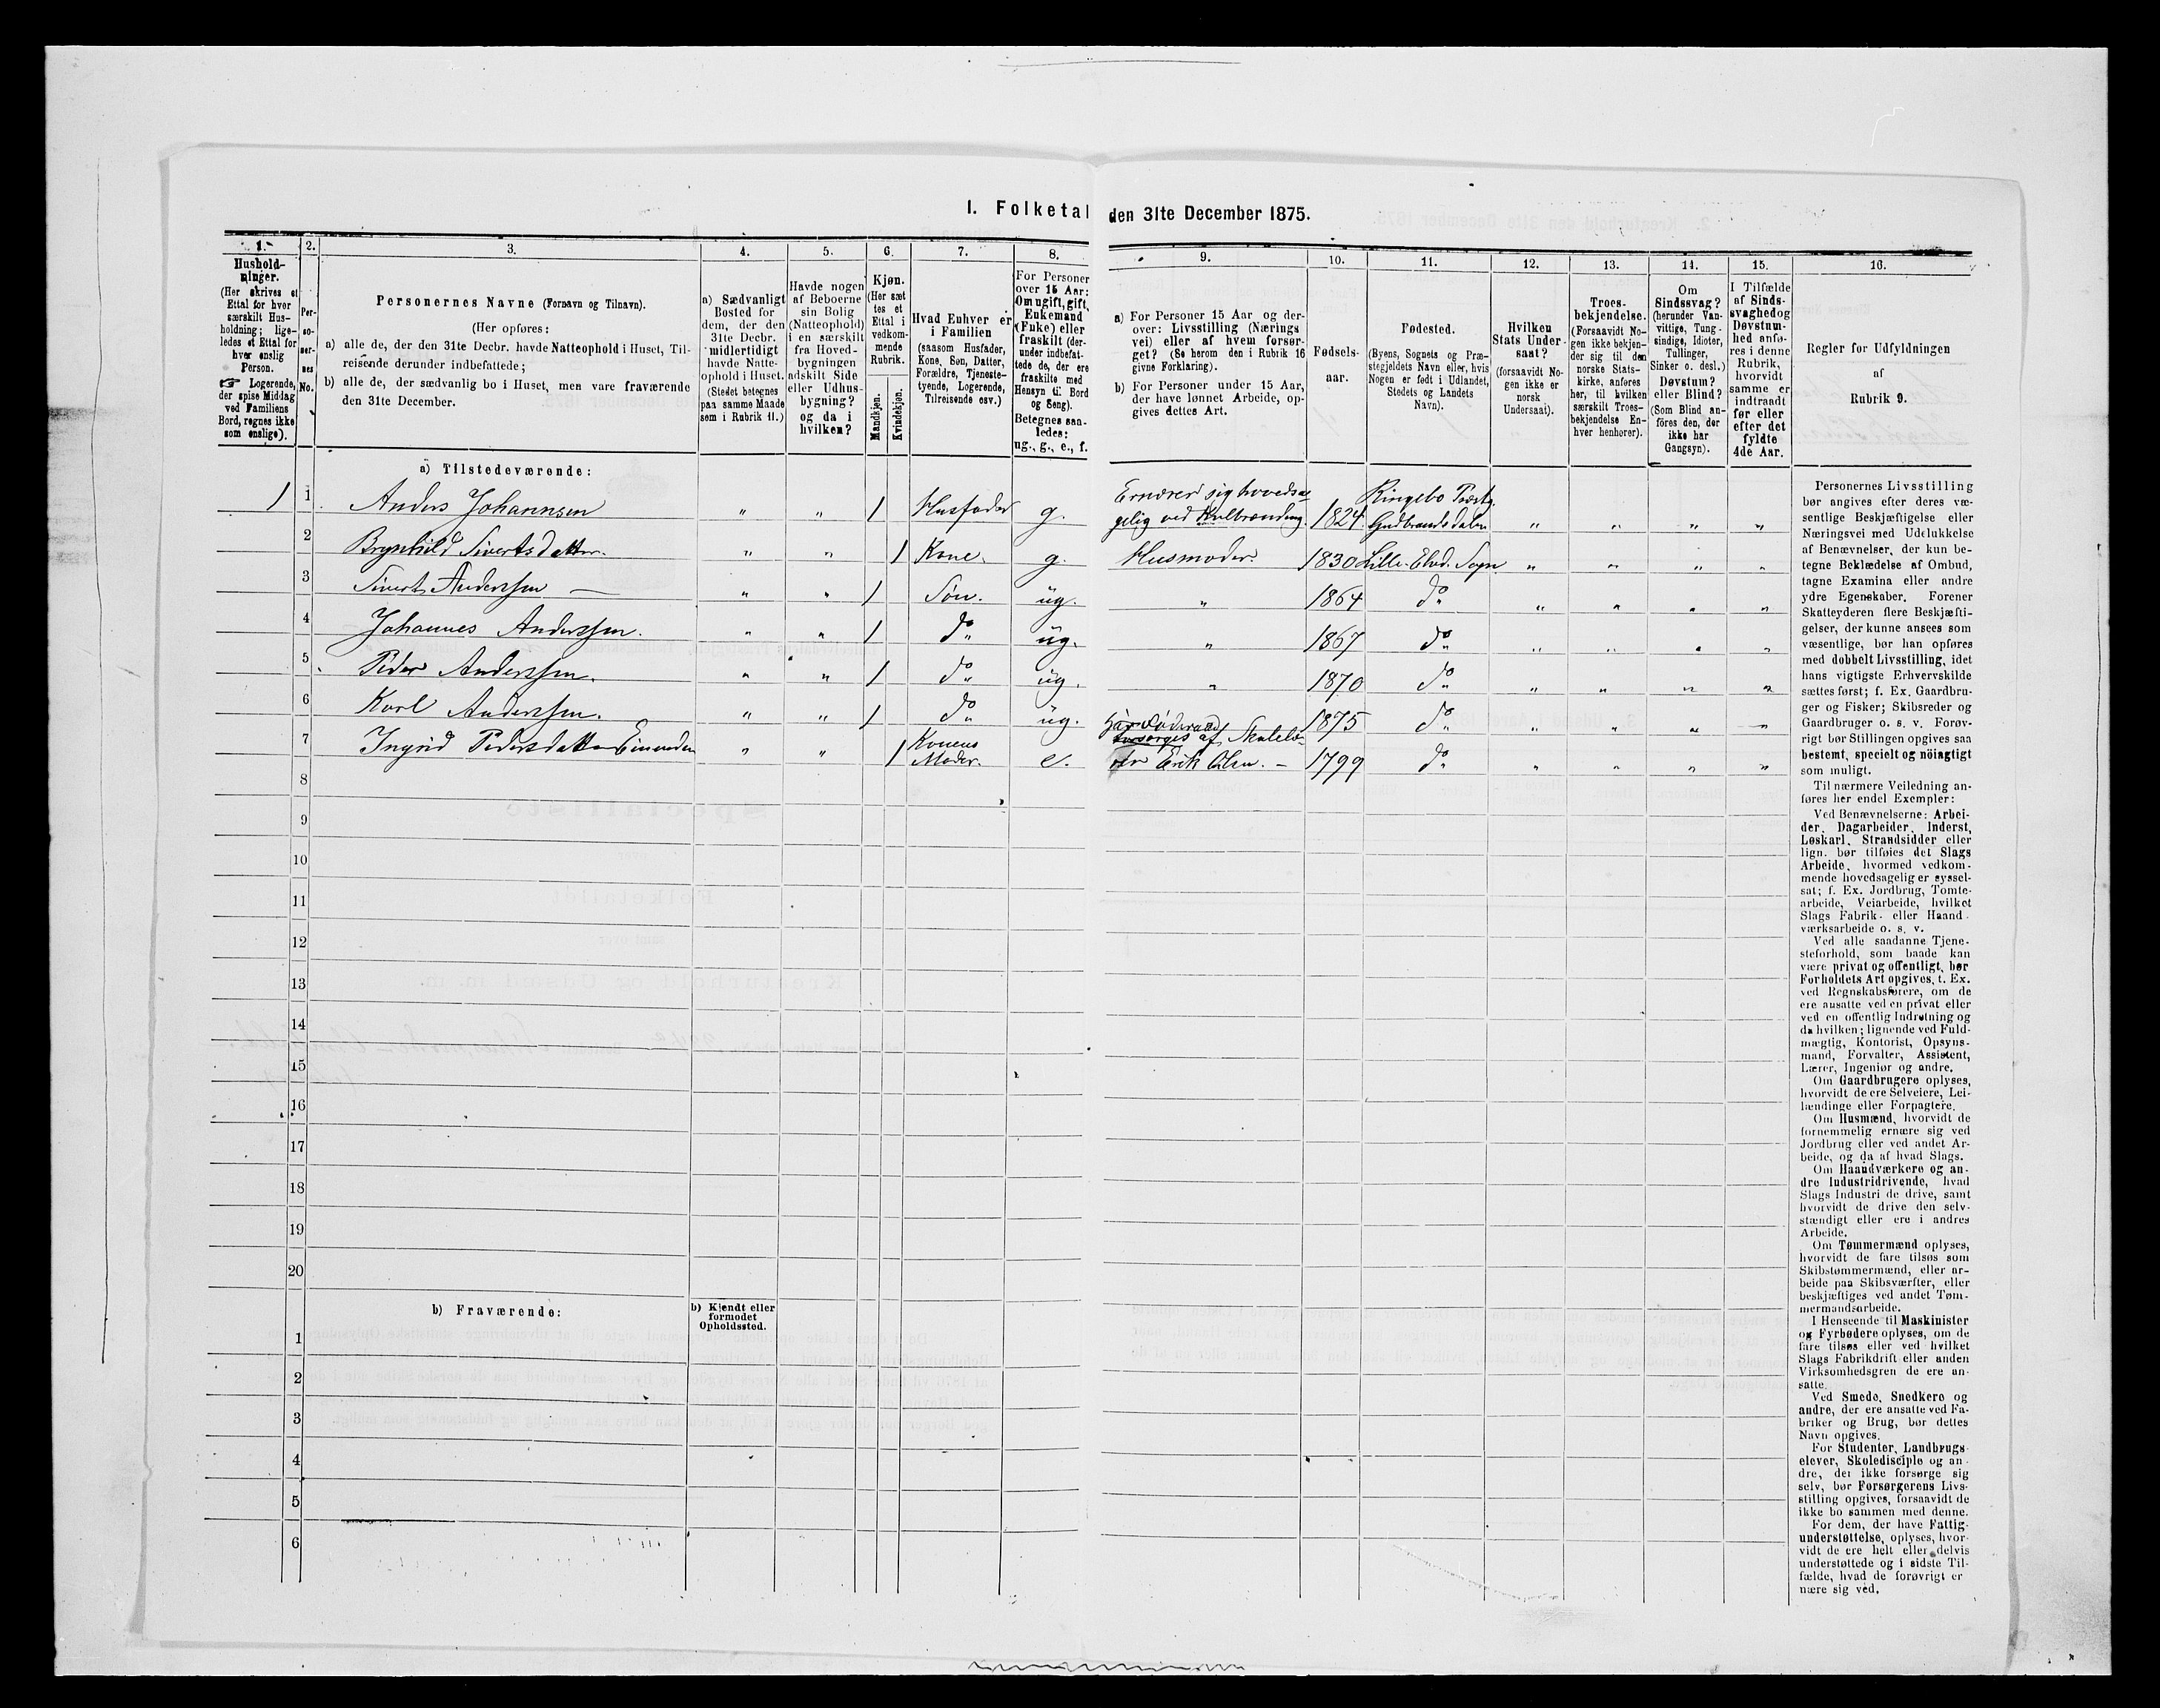 I. Folketal den 31te December 1875.
1. 2. 3. 4. 5. 6. 7. 8. 9. 10. 11. 12. 13. 14. 15. 16.
Hushold-
ninger.
(Her skrives et
Ettal for hver
særskilt Hus-
holdning; lige-
ledes et Ettal for
hver enslig
Person.
☞ Logerende,
der spise Middag
ved Familiens
Bord, regnes ikke
som enslige).
Per-
so-
ner-
nes
No.
Personernes Navne (Fornavn og Tilnavn).
(Her opføres:
a) alle de, der den 31te Decbr. havde Natteophold i Huset, Til-
reisende derunder indbefattede;
b) alle de, der sædvanlig bo i Huset, men vare fraværende
den 31te December.
a) Sædvanligt
Bosted for
dem, der den
31te Decbr.
midlertidigt
havde Natte-
ophold i Huset.
(Stedet betegnes
paa samme Maade
som i Rubrik 11.)
Havde nogen
af Beboerne
sin Bolig
(Natteophold)
i en særskilt
fra Hoved-
bygningen
adskilt Side
eller Udhus-
bygning?
og da i
hvilken?
Kjøn.
(Her sæt
tes et
Ettal i
vedkom-
mende
Rubrik.
Mandkjøn.
Kvindekjøn.
Hvad Enhver er
i Familien
(saasom Husfader,
Kone, Søn, Datter,
Forældre, Tjeneste-
tyende, Logerende,
Tilreisende osv.)
For Personer
over 15 Aar:
Om ugift, gift,
Enkemand
(Enke) eller
fraskilt (der-
under indbefat-
tede de, der ere
fraskilte med
Hensyn til Bord
og Seng).
Betegnes saa-
ledes:
ug., g., e., f.
a) For Personer 15 Aar og der-
over: Livsstilling (Nærings
vei) eller af hvem forsør-
get? (Se herom den i Rubrik 16
givne Forklaring).
b) For Personer under 15 Aar,
der have lønnet Arbeide, op-
gives dettes Art.
Fødsels-
aar.
Fødested.
(Byens, Sognets og Præ-
stegjeldets Navn eller, hvis
Nogen er født i Udlandet,
Stedets og Landets
Navn).
Hvilken
Stats Under-
saat?
(forsaavidt No-
gen ikke er
norsk
Undersaat).
Troes-
bekjendelse.
(Forsaavidt No-
gen ikke bekjen-
der sig til den
norske Stats-
kirke, anføres
her, til hvilken
særskilt Troes-
bekjendelse En-
hver henhører).
Om
Sindssvag?
(herunder Van-
vittige, Tung-
sindige, Idioter,
Tullinger,
Sinker o. desl.)
Døvstum?
eller Blind?
(Som Blind an-
føres den, der
ikke har
Gangsyn).
I Tilfælde
af Sinds-
svaghed og
Døvstum-
hed anfø-
res i denne
Rubrik,
hvorvidt
samme er
indtraadt
før eller
efter det
fyldte
4de Aar.
Regler for Udfyldningen
af
Rubrik 9.
a) Tilstedeværende:
1 1 Anders Johannsen " " 1 Husfader g. Ernærer sig hovedsa
gelig ved Kulbrænding. 1824 Ringebo Præstg. Gudbrandsdalen " " " "
2 Brynhild Sivertsdatter. " " 1 Kone. g. Husmoder. 1830 Lille-Elvd. Sogn " " " "
3 Sivert Anderssen — " " 1 Søn. ug. " 1864 do " " " "
4 Johannes Anderssen. " " 1 do ug. " 1867 do " " " "
5 Peder Anderssen. " " 1 do ug. " 1870 do " " " "
6 Karl Anderssen. " " 1 do ug. 1875 do " " " "
7 Ingrid Pedersdatter " " 1 Konens
Moder. e. Har Føderaad
forsørges af
Erik Olsen. — 1799 do " " " "
8
9
10
11
12
13
14
15
16
17
18
19
20
b) Fraværende:
b) Kjendt eller
formodet
Opholdssted.
1
2
3
4
5
6
Personernes Livsstilling
bør angives efter deres væ-
sentlige Beskjæftigelse eller
Næringsvei med Udelukkelse
af Benævnelser, der kun be-
tegne Beklædelse af Ombud,
tagne Examina eller andre
ydre Egenskaber. Forener
Skatteyderen flere Beskjæfti-
gelser, der kunne ansees som
væsentlige, bør han opføres
med dobbelt Livsstilling, idet
hans vigtigste Erhvervskilde
sættes først; f. Ex. Gaardbru-
ger og Fisker; Skibsreder og
Gaardbruger o. s. v. Forøv-
rigt bør Stillingen opgives saa
bestemt, specielt og nöiagtigt
som muligt.
Til nærmere Veiledning an-
føres her endel Exempler:
Ved Benævnelserne: Arbei-
der, Dagarbeider, Inderst,
Løskarl, Strandsidder eller
lign. bør tilføies det Slags
Arbeide, hvormed vedkom-
mende hovedsagelig er syssel-
sat; f. Ex. Jordbrug, Tomte-
arbeide, Veiarbeide, hvilket
Slags Fabrik- eller Haand-
værksarbeide o. s. v.
Ved alle saadanne Tjene-
steforhold, som baade kan
være privat og offentligt, bør
Forholdets Art opgives, t. Ex.
ved Regnskabsførere, om de
ere ansatte ved en privat eller
ved en offentlig Indretning og
da hvilken; lignende ved Fuld-
mægtig, Kontorist, Opsyns-
mand, Forvalter, Assistent,
Lærer, Ingeniør og andre.
Om Gaardbrugere oplyses,
hvorvidt de ere Selveiere, Lei-
lændinge eller Forpagtere.
Om Husmænd, hvorvidt de
fornemmelig ernære sig ved
Jordbrug eller ved andet Ar-
beide, og da af hvad Slags.
Om Haandværkere og an-
dre Industridrivende, hvad
Slags Industri de drive, samt
hvorvidt de drive den selv-
stændigt eller ere i andres
Arbeide.
Om Tømmermænd oplyses,
hvorvidt de fare tilsøs som
Skibstømmermænd, eller ar-
beide paa Skibsværfter, eller
beskjæftiges ved andet Tøm-
mermandsarbeide.
I Henseende til Maskinister
og Fyrbødere oplyses, om de
fare tilsøs eller ved hvilket
Slags Fabrikdrift eller anden
Virksomhedsgren de ere an-
satte.
Ved Smede, Snedkere og
andre, der ere ansatte ved Fa-
briker og Brug, bør dettes
Navn opgives.
For Studenter, Landbrugs-
elever, Skoledisciple og an-
dre, der ikke forsørge sig
selv, bør Forsørgerens Livs-
stilling opgives, forsaavidt de
ikke bo sammen med denne.
For dem, der have Fattig-
understøttelse, oplyses, hvor-
vidt de ere helt eller delvis
understøttede og i sidste Til-
fælde, hvad de forøvrigt er
nære sig ved.